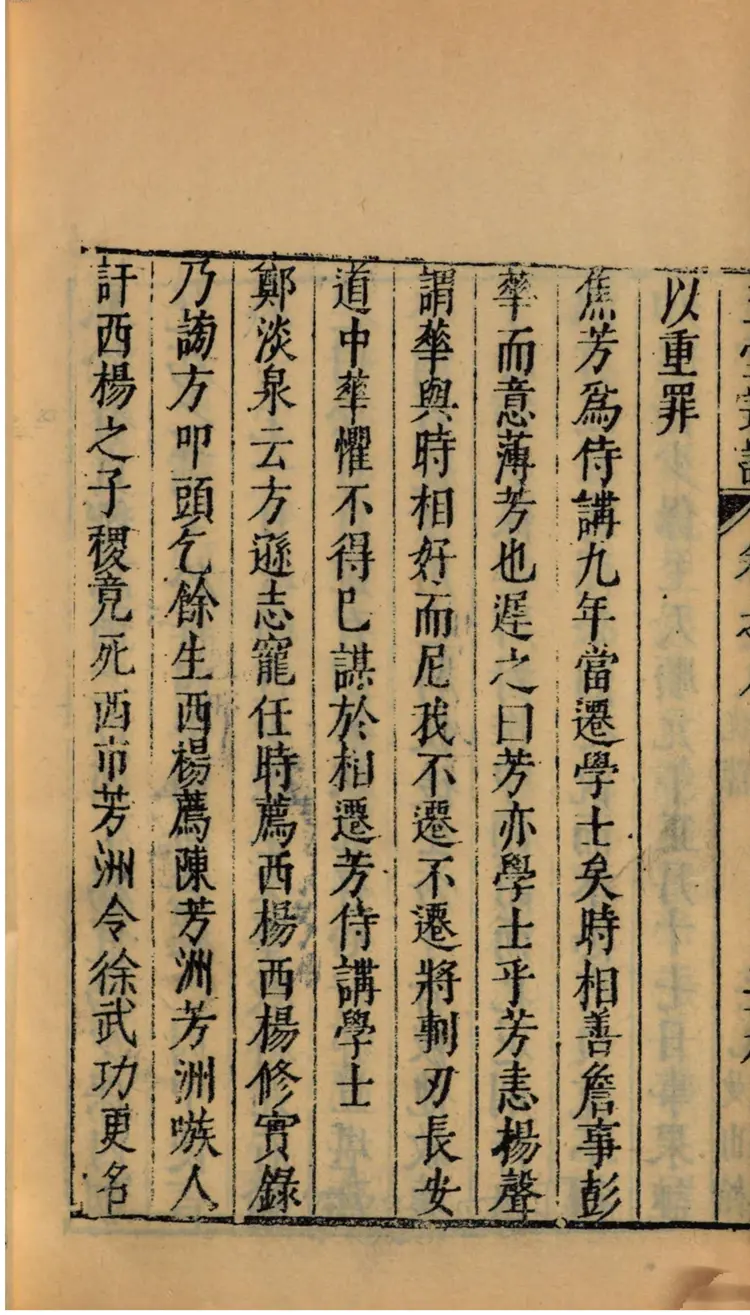 以重罪
焦芳爲侍講九年當遷學士矣時相善詹事彭
華而意薄芳也遲之曰芳亦學士乎芳恚楊聲
謂華與時相好而尼我不遷不遷將剚刃長安
道中華懼不得已謀於相遷芳侍講學士
鄭淡泉云方遜志寵任時薦西楊西楊修實錄
乃謅方叩頭乞餘生西楊薦陳芳洲芳洲嗾人
訐西楊之子稷竟死西市芳洲令徐武功更名